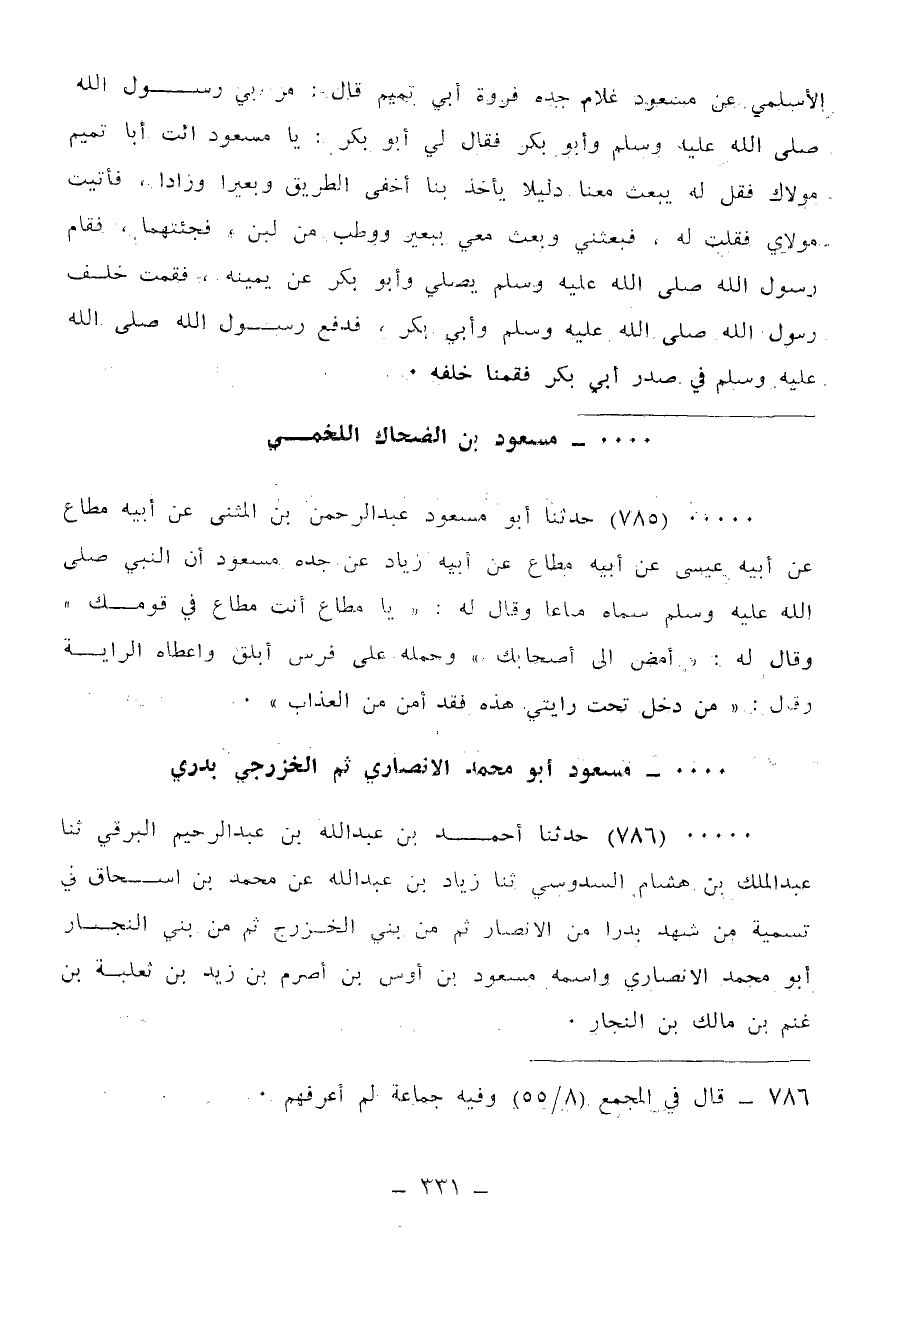 الأسلمي عن مسعود غلام جده فروة أبي تميم قال : مر بي رســـــول الله
صلى الله عليه وسلم وأبو بكر فقال لي أبو بكر : يا مسعود ائت أبا تميم
مولاك فقل له يبعث معنا دليلا يأخذ بنا أخفى الطريق وبعيرا وزادا ، فأتيت
مولاي فقلت له ، فبعثني وبعث معي ببعير ووطب من لبن ، فجئتهما ، فقام
رسول الله صلى الله عليه وسلم يصلي وأبو بكر عن يمينه ، فقمت خلــف
رسول الله صلى الله عليه وسلم وأبي بكر ، فدفع رســـول الله صلى الله
عليه وسلم في صدر أبي بكر فقمنا خلفه ٠
٠٠٠٠ ــ مسعود بن الضحاك اللخمــــي
٠٠٠٠٠ (٧٨٥) حدثنا أبو مسعود عبدالرحمن بن المثنى عن أبيه مطاع
عن أبيه عيسى عن أبيه مطاع عن أبيه زياد عن جده مسعود أن النبي صلى
الله عليه وسلم سماه مطاعا وقال له : « يا مطاع أنت مطاع في قومـــك »
وقال له : « أمض الى أصحابك » وحمله على فرس أبلق واعطاه الرايـــة
وقال : « من دخل تحت رايتي هذه فقد أمن من العذاب » ٠
٠٠٠٠ ــ مسعود أبو محمد الانصاري ثم الخزرجي بدري
٠٠٠٠٠ (٧٨٦) حدثنا أحمـــد بن عبدالله بن عبدالرحيم البرقي ثنا
عبدالملك بن هشام السدوسي ثنا زياد بن عبدالله عن محمد بن اســـحاق في
تسمية من شهد بدرا من الانصار ثم من بني الخــزرج ثم من بني النجـــار
أبو محمد الانصاري واسمه مسعود بن أوس بن أصرم بن زيد بن ثعلبـة بن
غنم بن مالك بن النجار ٠
٧٨٦ ــ قال في المجمع (٥٥/٨) وفيه جماعة لم أعرفهم ٠
ــ ٣٣١ ــ